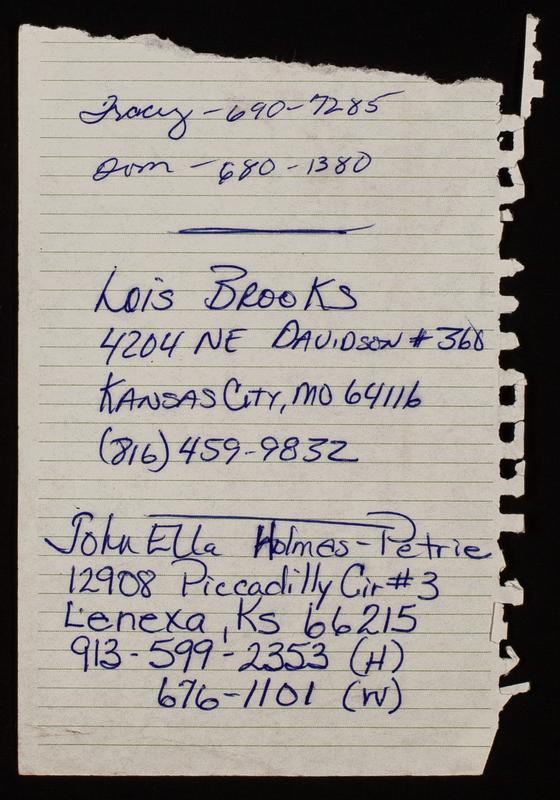 Tracey - 690-7285
Dom - 680-1380
Lois Brooks
4204 NE Davidson # 360
Kansas City, MO 64116
(816) 459-9832
John Ella Holmes-Petrie
12908 Piccadilly Cir #3
Lenexa, Ks 66215
913-599-2353 (H)
676-1101 (W)